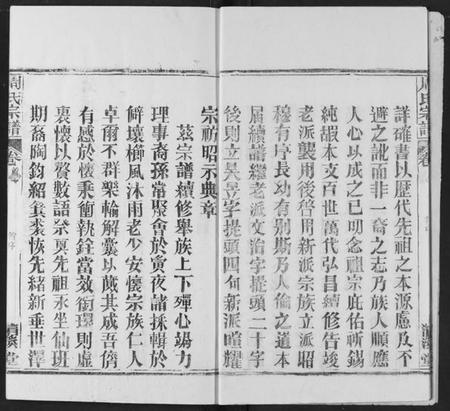 周氏宗譜
詳確書以歷代先祖之本源慮及不
避之訛而非一裔之志乃族人順應
人心以成之已明念祖宗庇佑祈錫
純嘏本支百世萬代弘昌續修告竣
老派襲用後啓用新派宗族立派昭
穆有序長幼有別斯乃人倫之道本
屆續譜繼老派文治字提頭二十字
後則立吳昱字提頭四句新派暄耀
宗祊昭示典章
茲宗譜續修舉族上下殫心竭力
理事裔孫常聚會於寅夜諸採輯於
僻壤櫛風沐雨老少安懷宗族仁人
卓爾不群樂輸解囊以戴其成吾儕
有感於懷秉衡執銓當效銜環則虛
裏懷以贅數語祭奠先祖永坐仙班
期裔陶鈞紹箕裘恢先緒新垂世澤
周氏宗譜
卷首